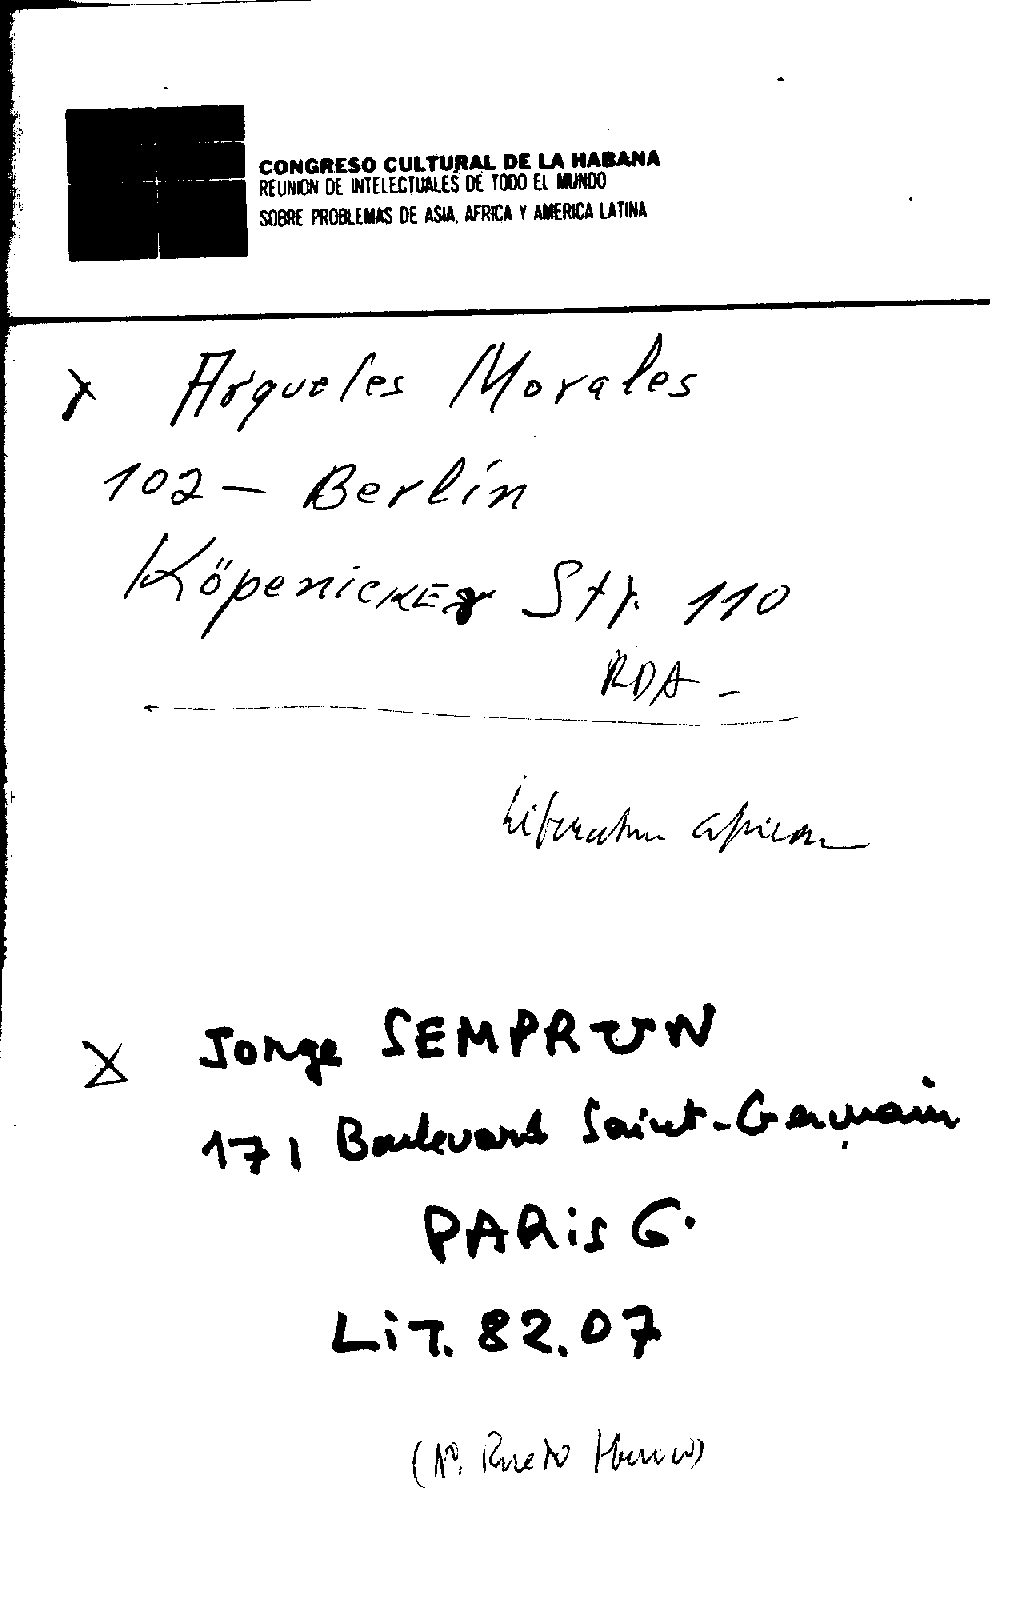 CONGRESO CULTURAL DE LA HABANA
REUNION DE INTELECTUALES DE TODO EL MUNDO
SOBRE PROBLEMAS DE ASIA, AFRICA Y AMERICA LATINA
x Arqueles Morales
102 - Berlín
Köpenicker Str. 110
RDA -
Literatura africana
x Jorge SEMPRUN
171 Boulevard Saint-Germain
PARiS 6.
LiT. 82.07